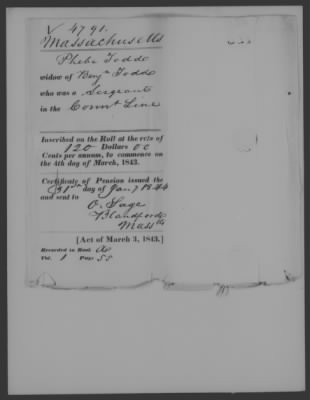 4791.
Massachusetts
Phebe Todd
widow of Benjn Todd
who was a Sergeant
in the Connt Line
Inscribed on the Roll at the rate of
120 Dollars 00
Cents per annum, to commence on
the 4th day of March, 1843.
Certificate of Pension issued the
31st day of Jany 1844
and sent to
O. Sage
Blandford
Massts
[Act of March 3, 1843.]
Recorded in Book A
Vol. 1 Page 55